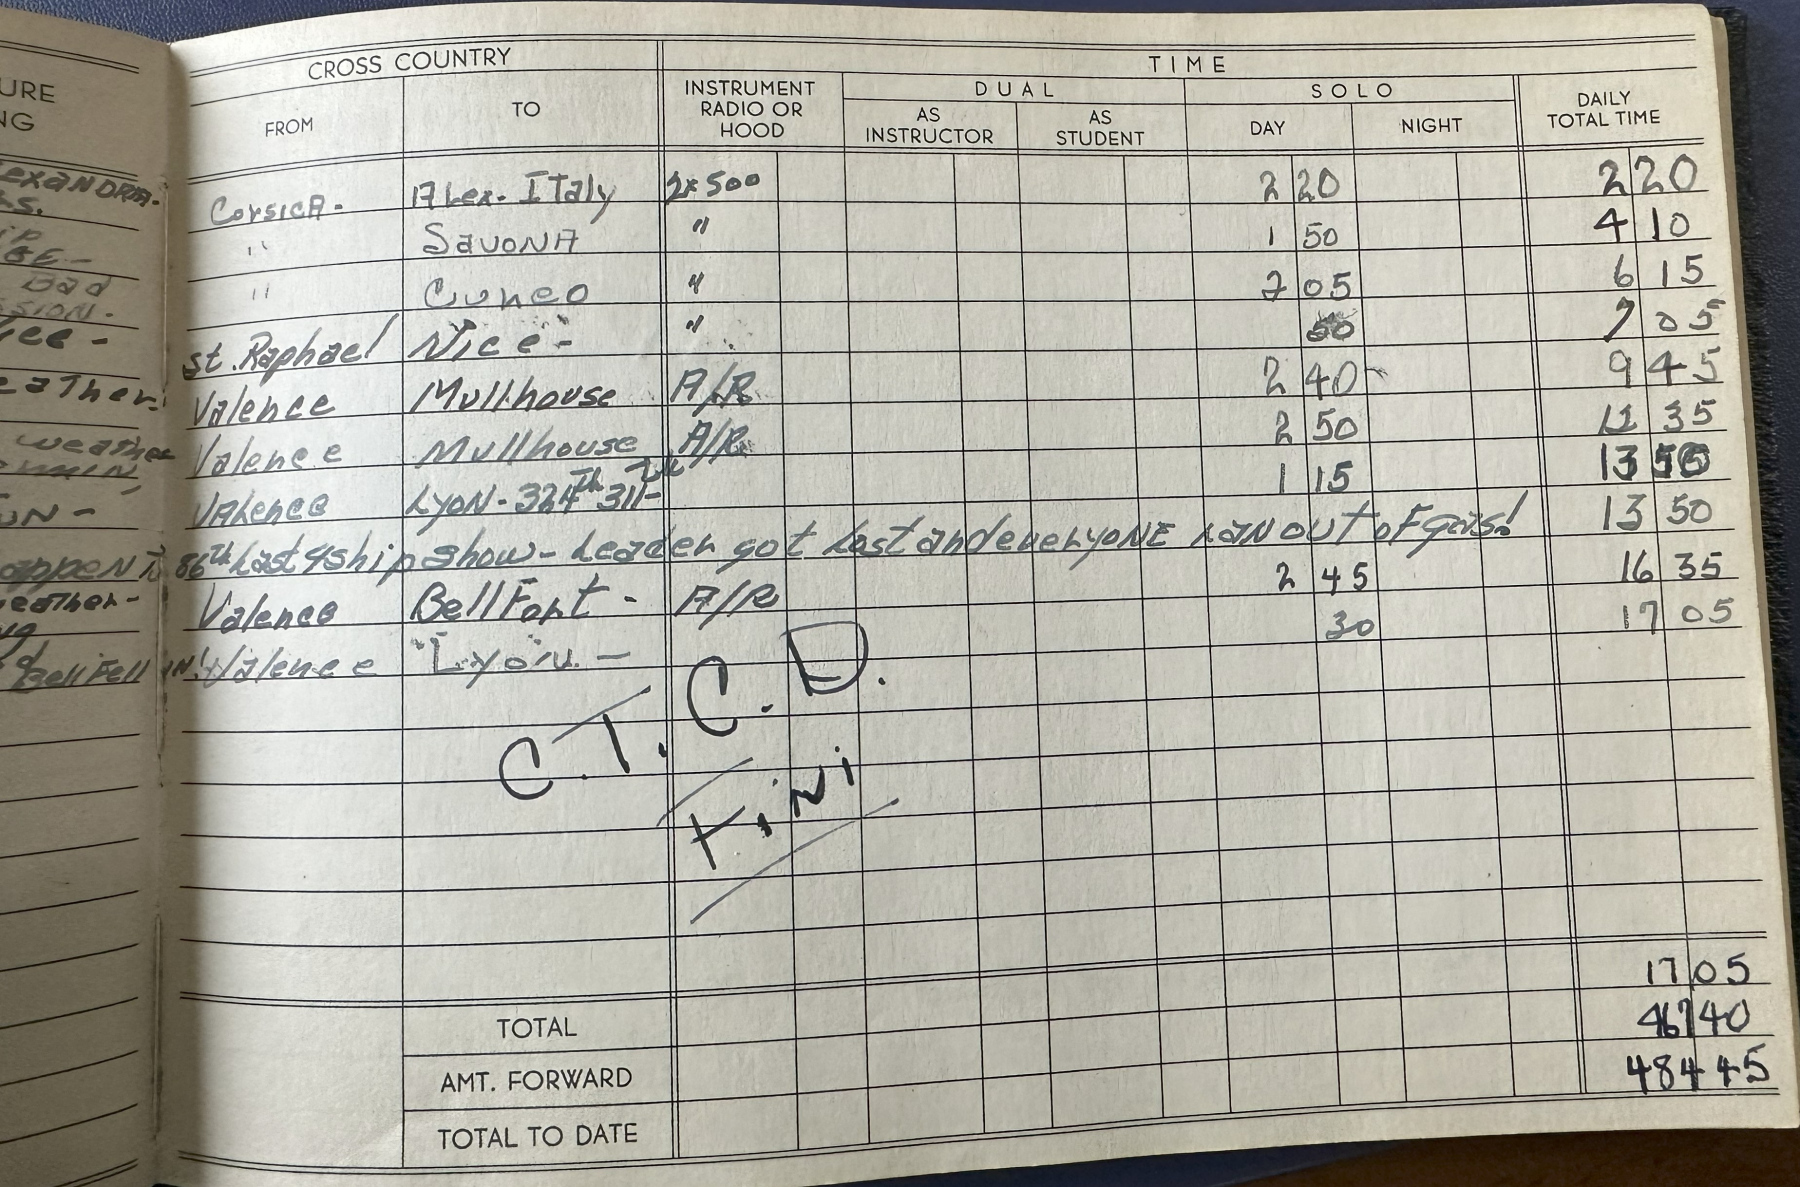 CROSS COUNTRY TIME
URE NG
FROM TO INSTRUMENT RADIO OR HOOD DUAL AS INSTRUCTOR AS STUDENT SOLO DAY NIGHT DAILY TOTAL TIME
CorsicA- Alex. ITaly 2x500 2 20 2 20
" SavoNA " 1 50 4 10
" Cuneo " 2 05 6 15
st. Raphael Nice- " 50 7 05
Valence Mullhouse A/R 2 40 9 45
weather Valence Mullhouse A/R 2 50 35
VALence LyoN-324Th 311- 1 15 13 50
86th Last 4 ship show- Leader got Lost and everyoNE ran out of gas! 13 50
Valence BellFort- A/R 2 45 16 35
Bell Fell IN! Valence "Lyon- 30 17 05
C.T.C.D.
Fini
17 05
TOTAL 467 40
AMT. FORWARD 484 45
TOTAL TO DATE